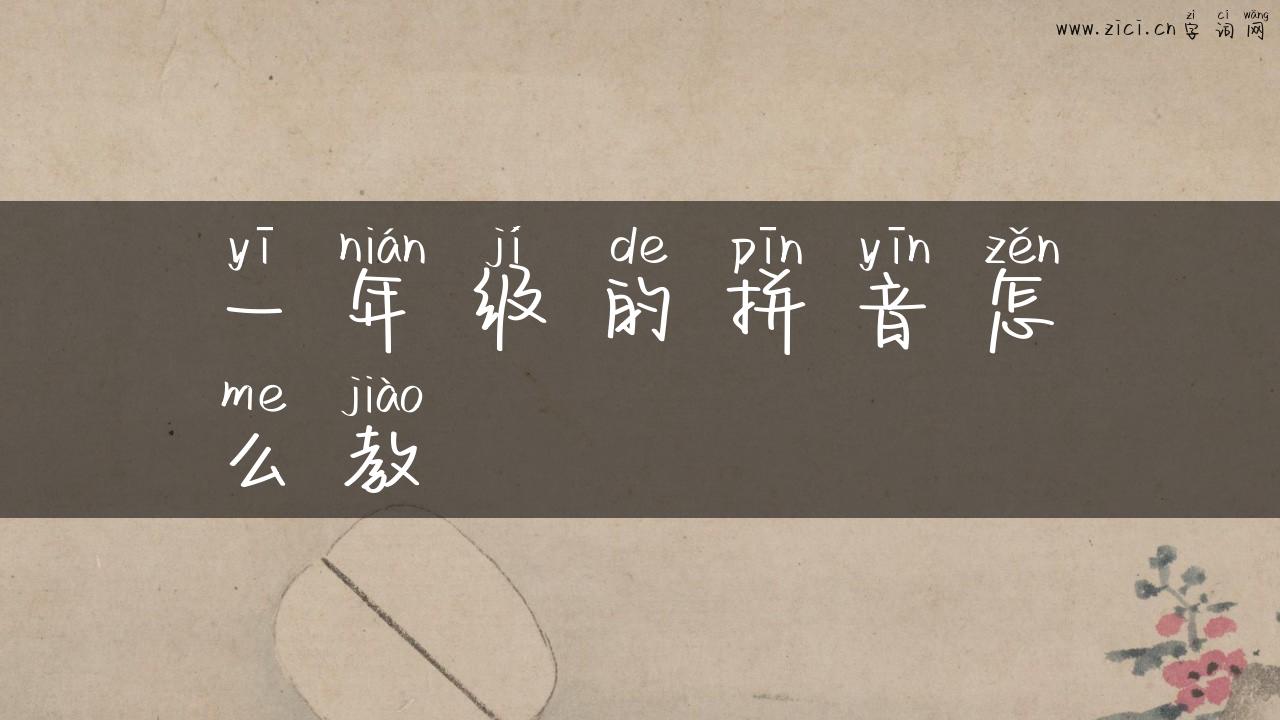 zì cí wǎng
www.zici.cn 字 词 网
yī nián jí de pīn yīn zěn
一 年 级 的 拼 音 怎
me jiào
么 教